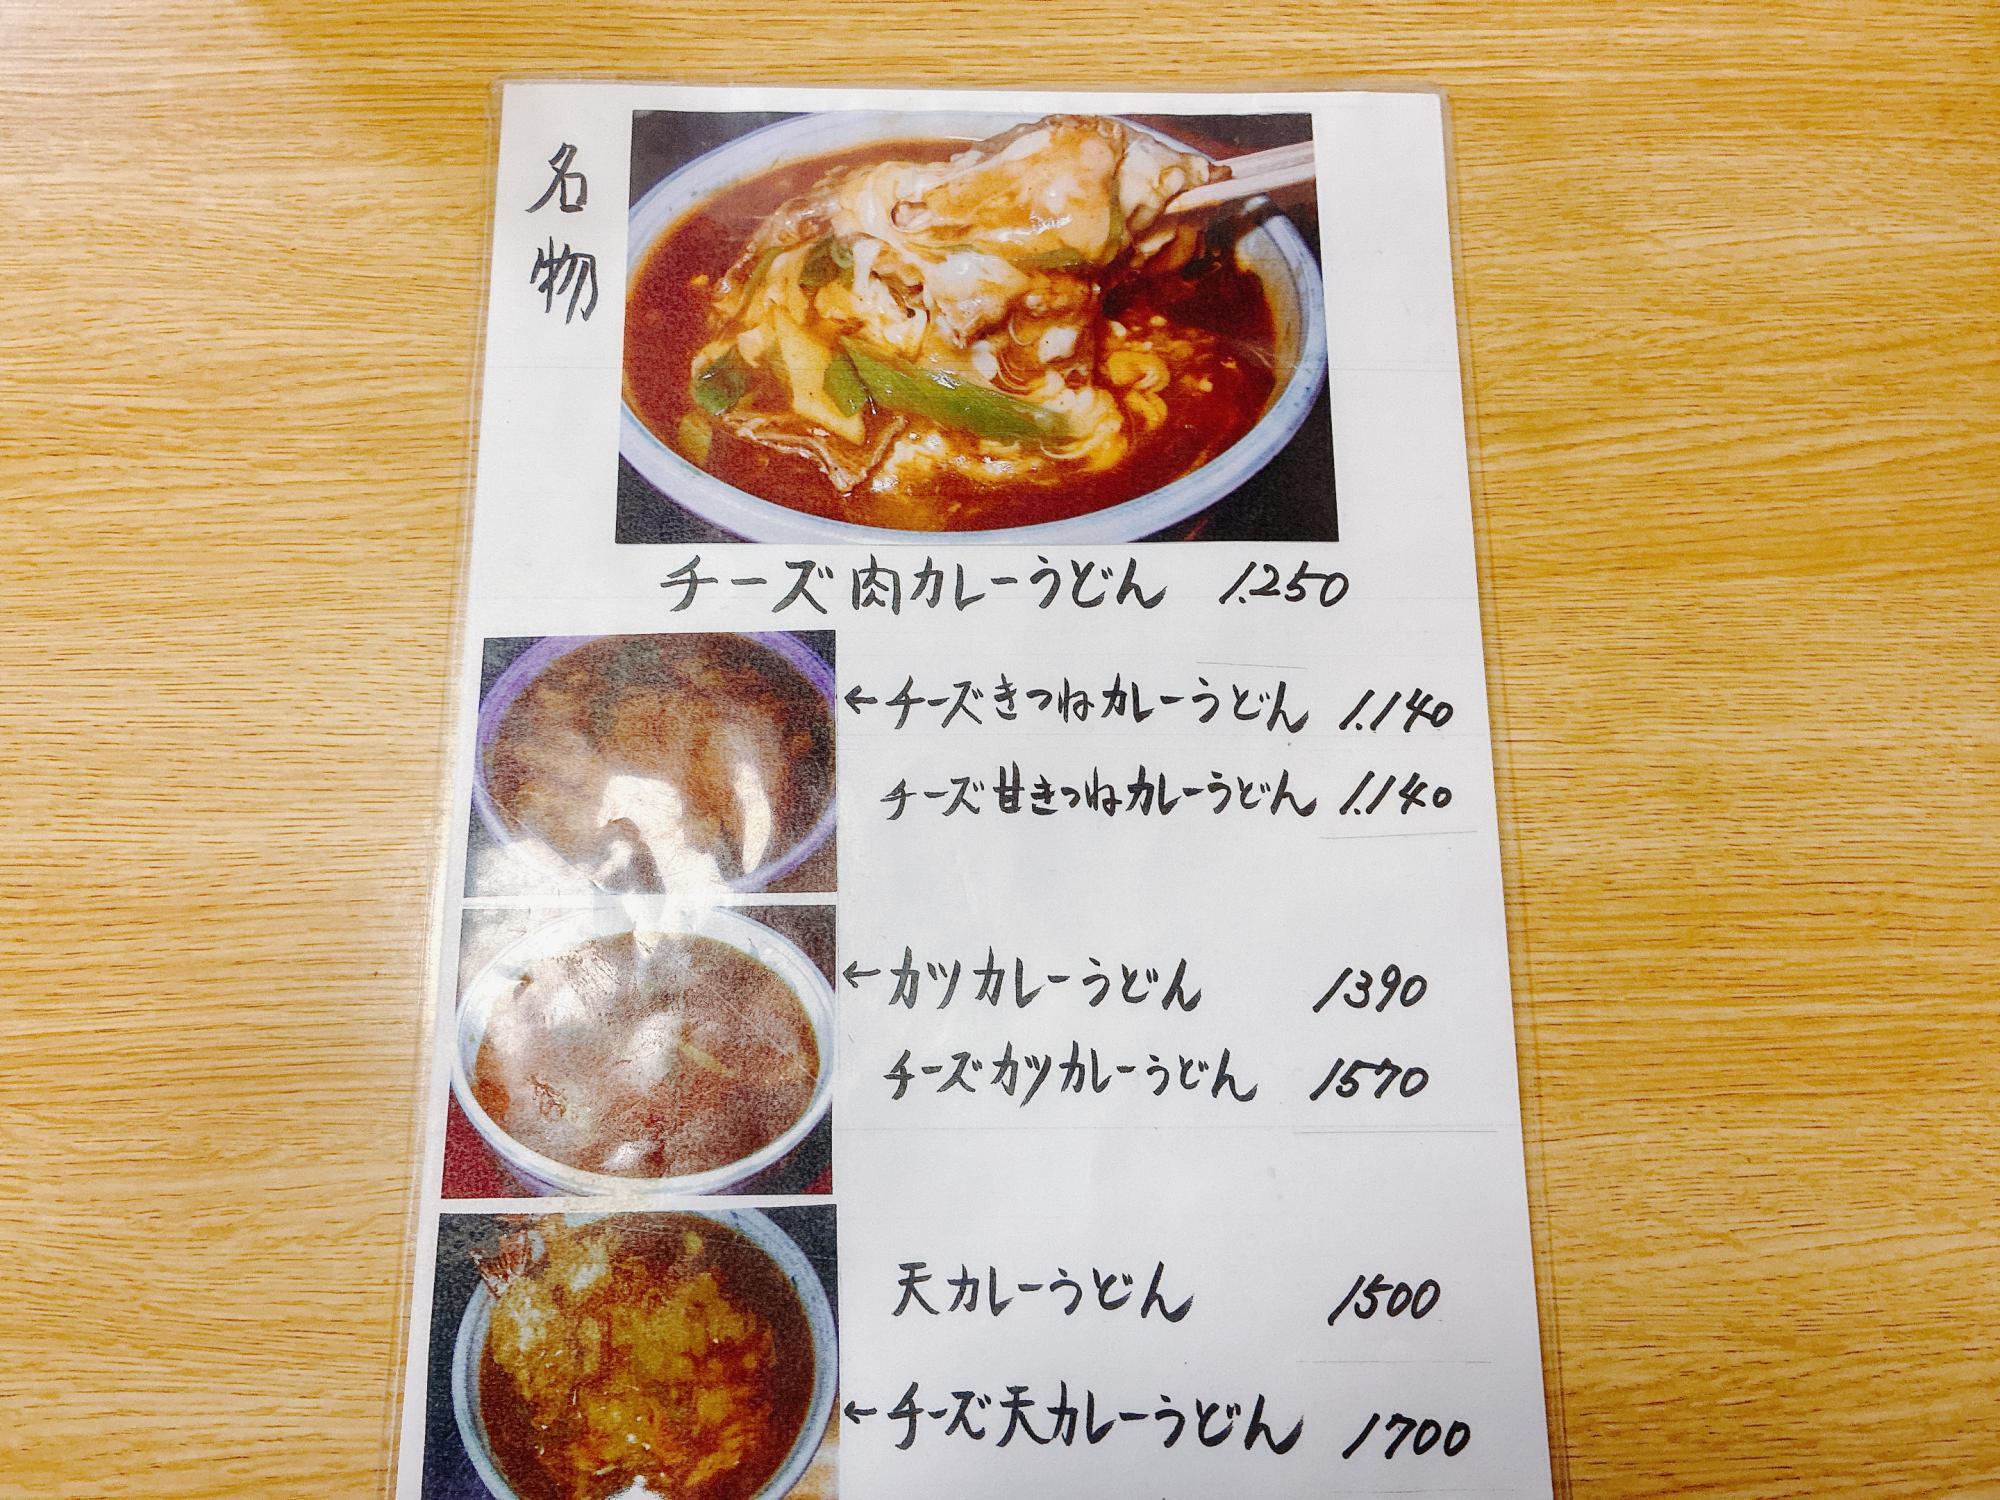 名物
チーズ肉カレーうどん 1.250
←チーズきつねカレーうどん 1.140
チーズ甘きつねカレーうどん 1.140
←カツカレーうどん 1390
チーズカツカレーうどん 1570
天カレーうどん 1500
←チーズ天カレーうどん 1700